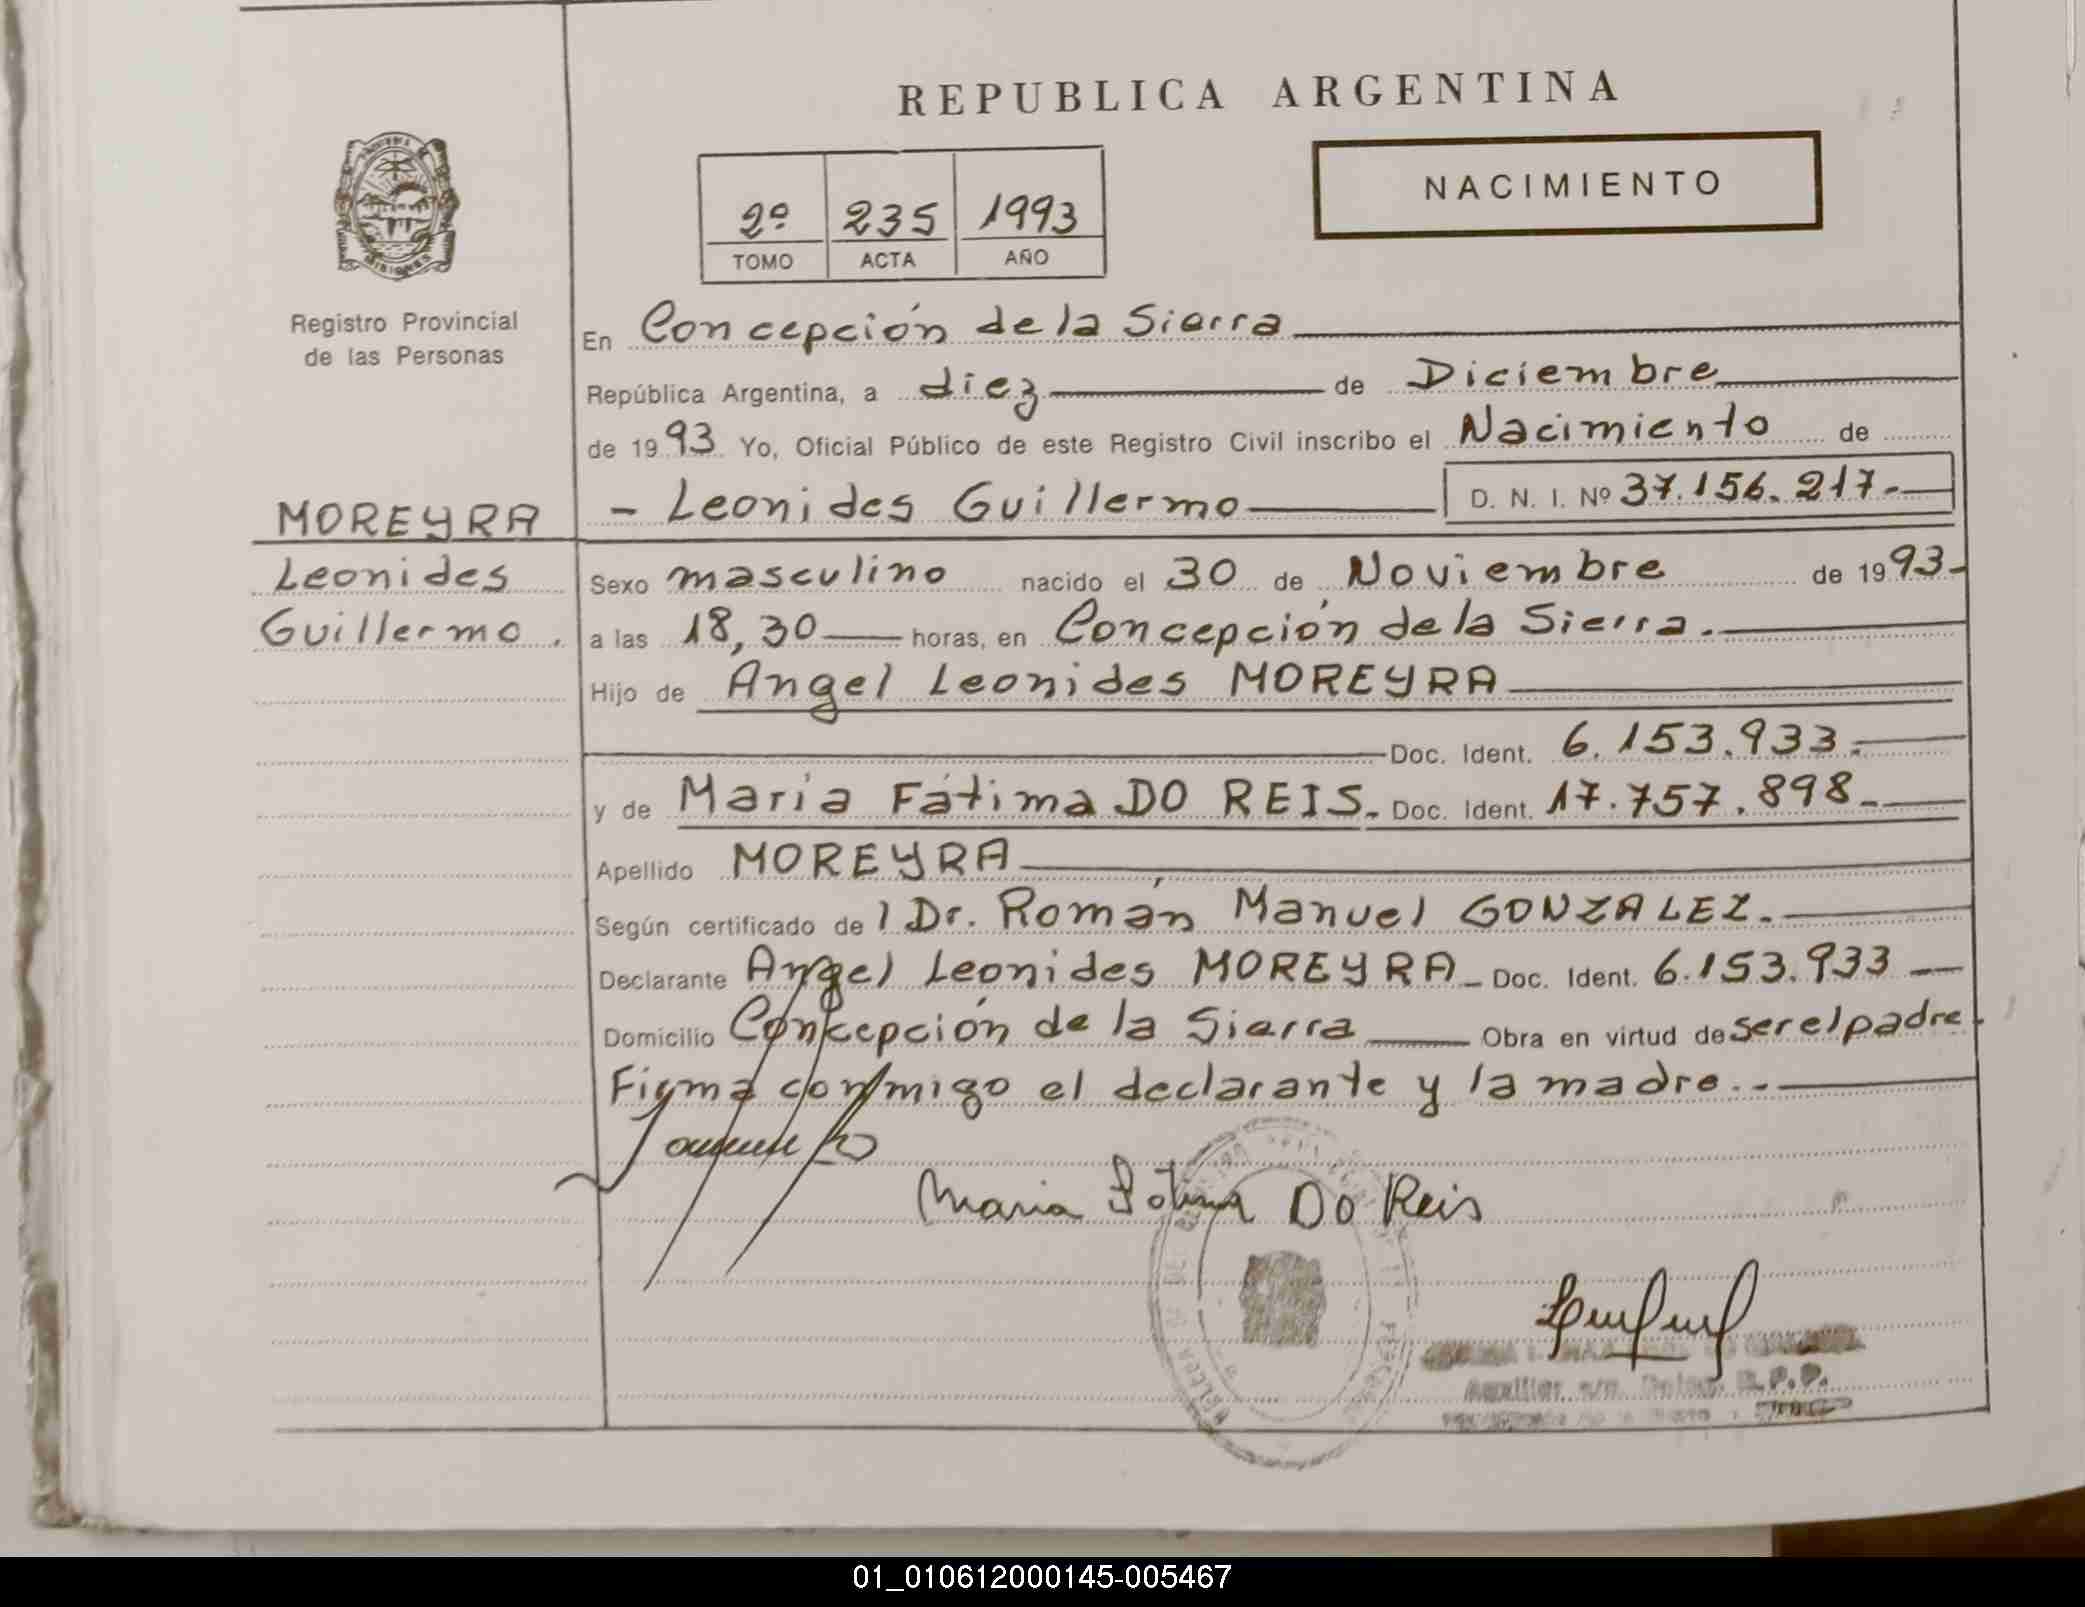 REPUBLICA ARGENTINA
NACIMIENTO
2º 235 1993
TOMO ACTA AÑO
MISIONES
Registro Provincial
de las Personas
MOREYRA
Leonides
Guillermo.
En Concepción de la Sierra
República Argentina, a diez de Diciembre
de 1993 Yo, Oficial Público de este Registro Civil inscribo el Nacimiento de
- Leonides Guillermo D. N. I. Nº 37.156.217.-
Sexo masculino nacido el 30 de Noviembre de 1993-
a las 18,30 horas, en Concepción de la Sierra.
Hijo de Angel Leonides MOREYRA
Doc. Ident. 6.153.933.-
y de María Fátima DO REIS. Doc. Ident. 17.757.898.-
Apellido MOREYRA
Según certificado del Dr. Román Manuel GONZALEZ.
Declarante Angel Leonides MOREYRA - Doc. Ident. 6.153.933
Domicilio Concepción de la Sierra Obra en virtud de ser el padre
Firma conmigo el declarante y la madre.-
Maria Fátima Do Reis
Auxiliar R.P.P.
01_010612000145-005467